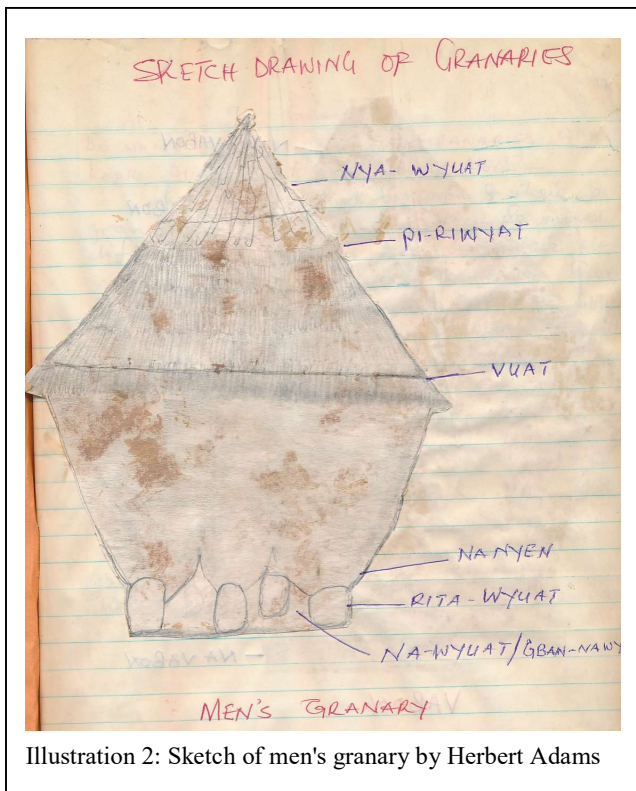 SKETCH DRAWING OF GRANARIES
NYA-WYUAT
PI-RIWYAT
VUAT
NANYEN
RITA-WYUAT
NA-WYUAT/GBAN-NAWY
MEN'S GRANARY
Illustration 2: Sketch of men's granary by Herbert Adams